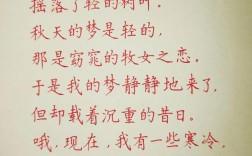 摇落了轻的树叶。
秋天的梦是轻的，
那是窈窕的牧女之恋。
于是我的梦静静地来了，
但却载着沉重的昔日。
哦，现在，我有一些寒冷，